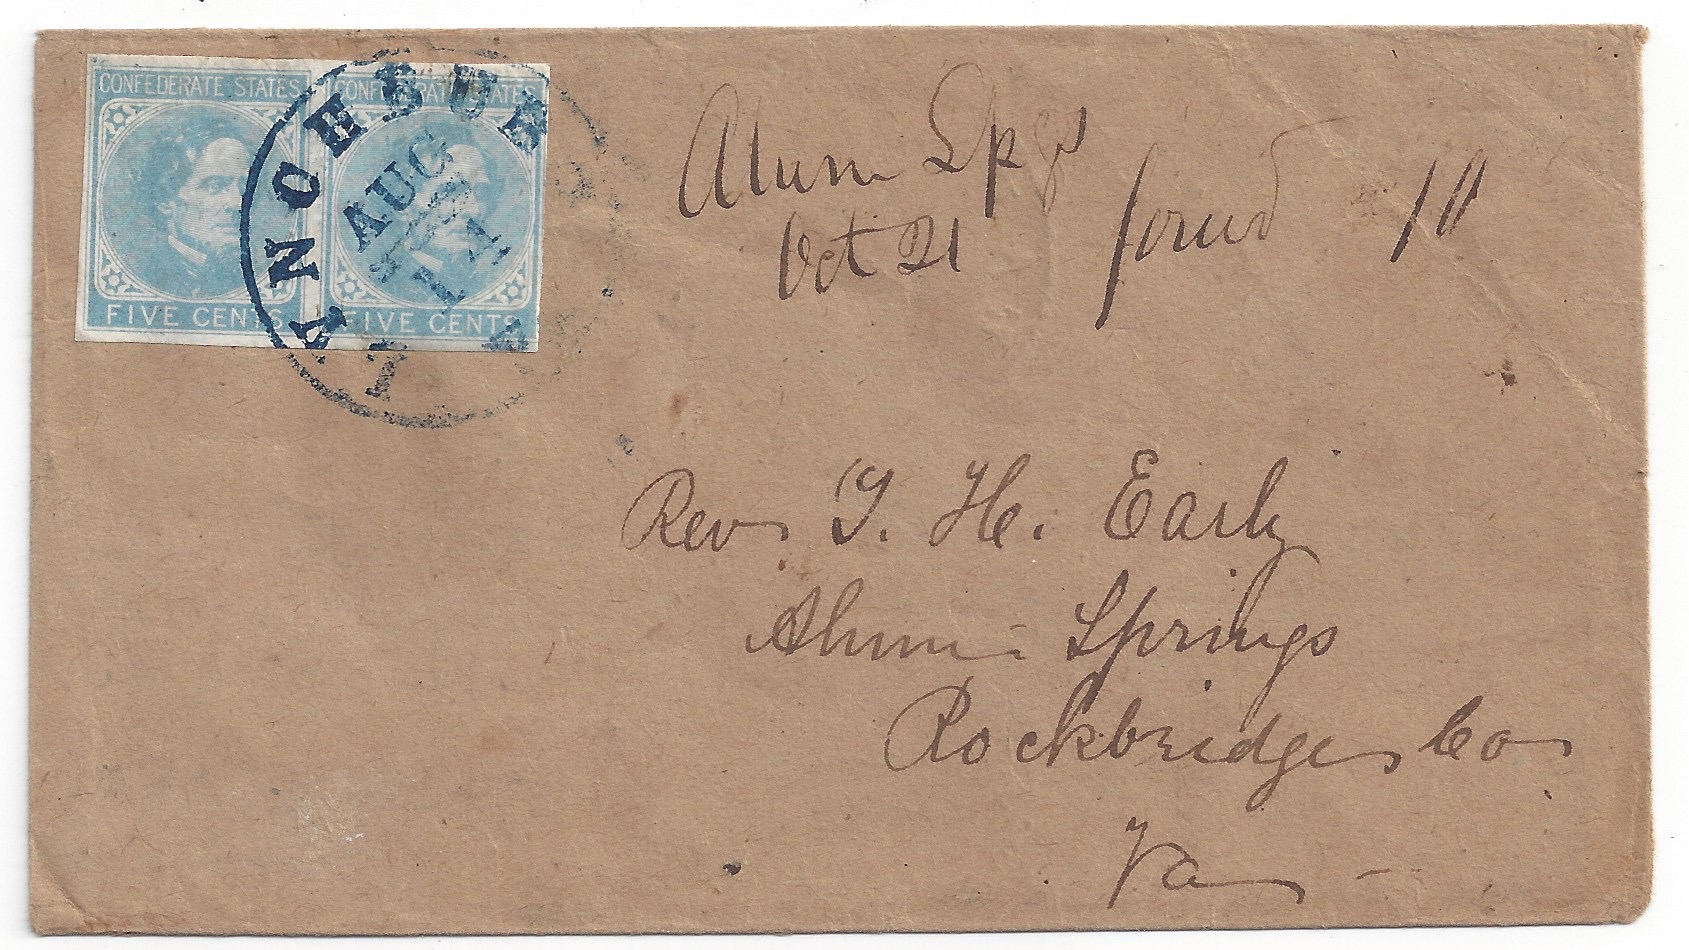 CONFEDERATE STATES
FIVE CENTS
CONFEDERATE STATES
FIVE CENTS
LYNCHBUR
AUG
14
Alum Spgs
Oct 21
forwd 10
Rev. J. H. Early
Alum Springs
Rockbridge Co
Va